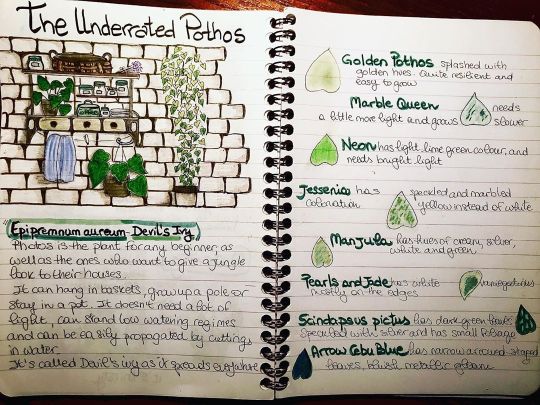 The Underrated Pothos
Epipremnum aureum - Devil's Ivy
Photos is the plant for any beginner, as
well as the ones who want to give a jungle
look to their houses.
It can hang in baskets, grow up a pole or
stay in a pot. It doesn't need a lot of
light, can stand low watering regimes
and can be easily propagated by cuttings
in water
It's called Devil's ivy as it spreads everywhere
Golden Pothos splashed with
golden hues. Quite resilient and
easy to grow
Marble Queen needs
a little more light and grows slower
Neon has light lime green colour, and
needs bright light
Jessenia has speckled and marbled
coloration yellow instead of white
Manjula has hues of cream, silver,
white and green.
Pearls and Jade has white variegations
mostly on the edges
Scindapsus pictus has dark green leaves
speculted with silver and has small foliage
Arrow Cebu Blue has narrow arrowed-shaped
leaves, bluish metallic gleam